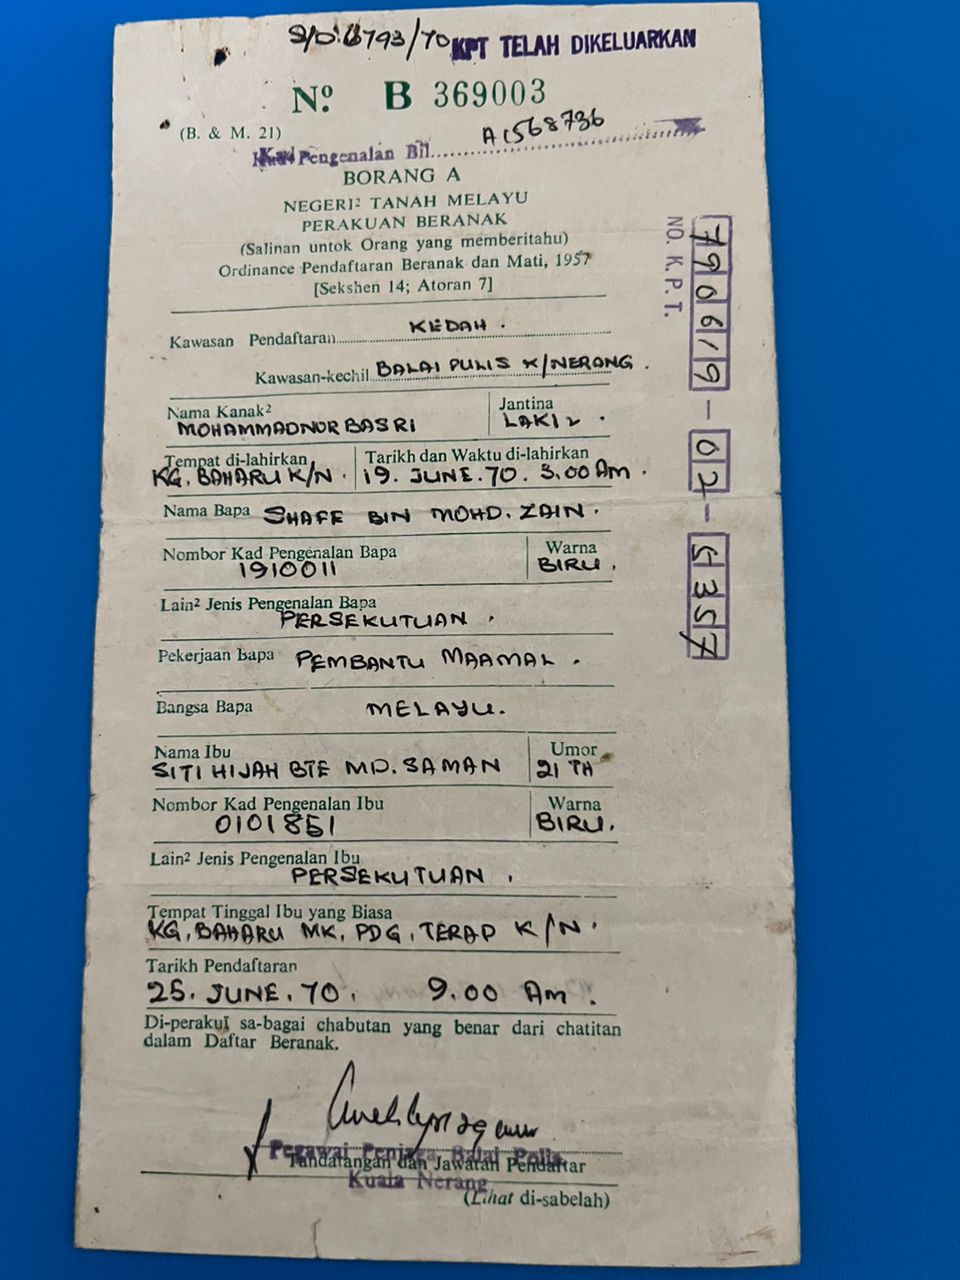 S/D. 6793/70 KPT TELAH DIKELUARKAN
Nº B 369003
(B. & M. 21)
Kad Pengenalan Bil. A 1568736
BORANG A
NEGERI² TANAH MELAYU
PERAKUAN BERANAK
(Salinan untok Orang yang memberitahu)
Ordinance Pendaftaran Beranak dan Mati, 1957
[Sekshen 14; Atoran 7]
Kawasan Pendaftaran KEDAH.
Kawasan-kechil BALAI PULIS K/NERANG.
Nama Kanak² Jantina
MOHAMMADNOR BASRI LAKI2.
Tempat di-lahirkan Tarikh dan Waktu di-lahirkan
KG. BAHARU K/N. 19. JUNE. 70. 3.00 Am.
Nama Bapa SHAFF BIN MOHD. ZAIN.
Nombor Kad Pengenalan Bapa Warna
1910011 BIRU.
Lain² Jenis Pengenalan Bapa
PERSEKUTUAN.
Pekerjaan Bapa PEMBANTU MAAMAL.
Bangsa Bapa MELAYU.
Nama Ibu Umor
SITI HIJAH BTE MD. SAMAN 21 TH
Nombor Kad Pengenalan Ibu Warna
0101851 BIRU.
Lain² Jenis Pengenalan Ibu
PERSEKUTUAN.
Tempat Tinggal Ibu yang Biasa
KG. BAHARU MK. PDG. TERAP K/N.
Tarikh Pendaftaran
25. JUNE. 70. 9.00 Am.
Di-perakui sa-bagai chabutan yang benar dari chatitan
dalam Daftar Beranak.
Pegawai Penjaga, Balai Polis,
Tandatangan dan Jawatan Pendaftar
Kuala Nerang
(Lihat di-sabelah)
NO. K. P. T.
790619-02-5357